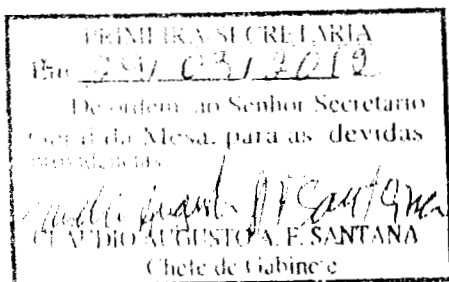 PRIMEIRA SECRETARIA
Em 29/03/2012
De ordem, ao Senhor Secretário
Geral da Mesa, para as devidas
providências
CLAUDIO AUGUSTO A. F. SANTANA
Chefe de Gabinete